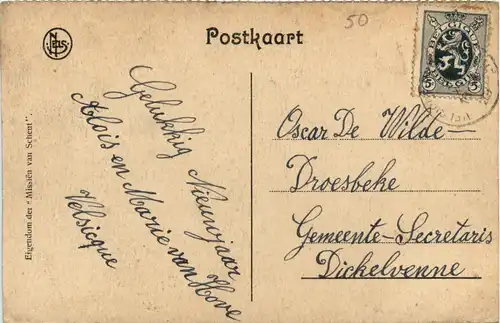 50
Postkaart
NELS
BELGIQUE
5 5
BELGIE
Eigendom der "Missiën van Scheut".
Gelukkig Nieuwjaar
Aloïs en Marie van Hove
Velsicque
Oscar De Wilde-
Droesbeke
Gemeente-Secretaris
Dickelvenne